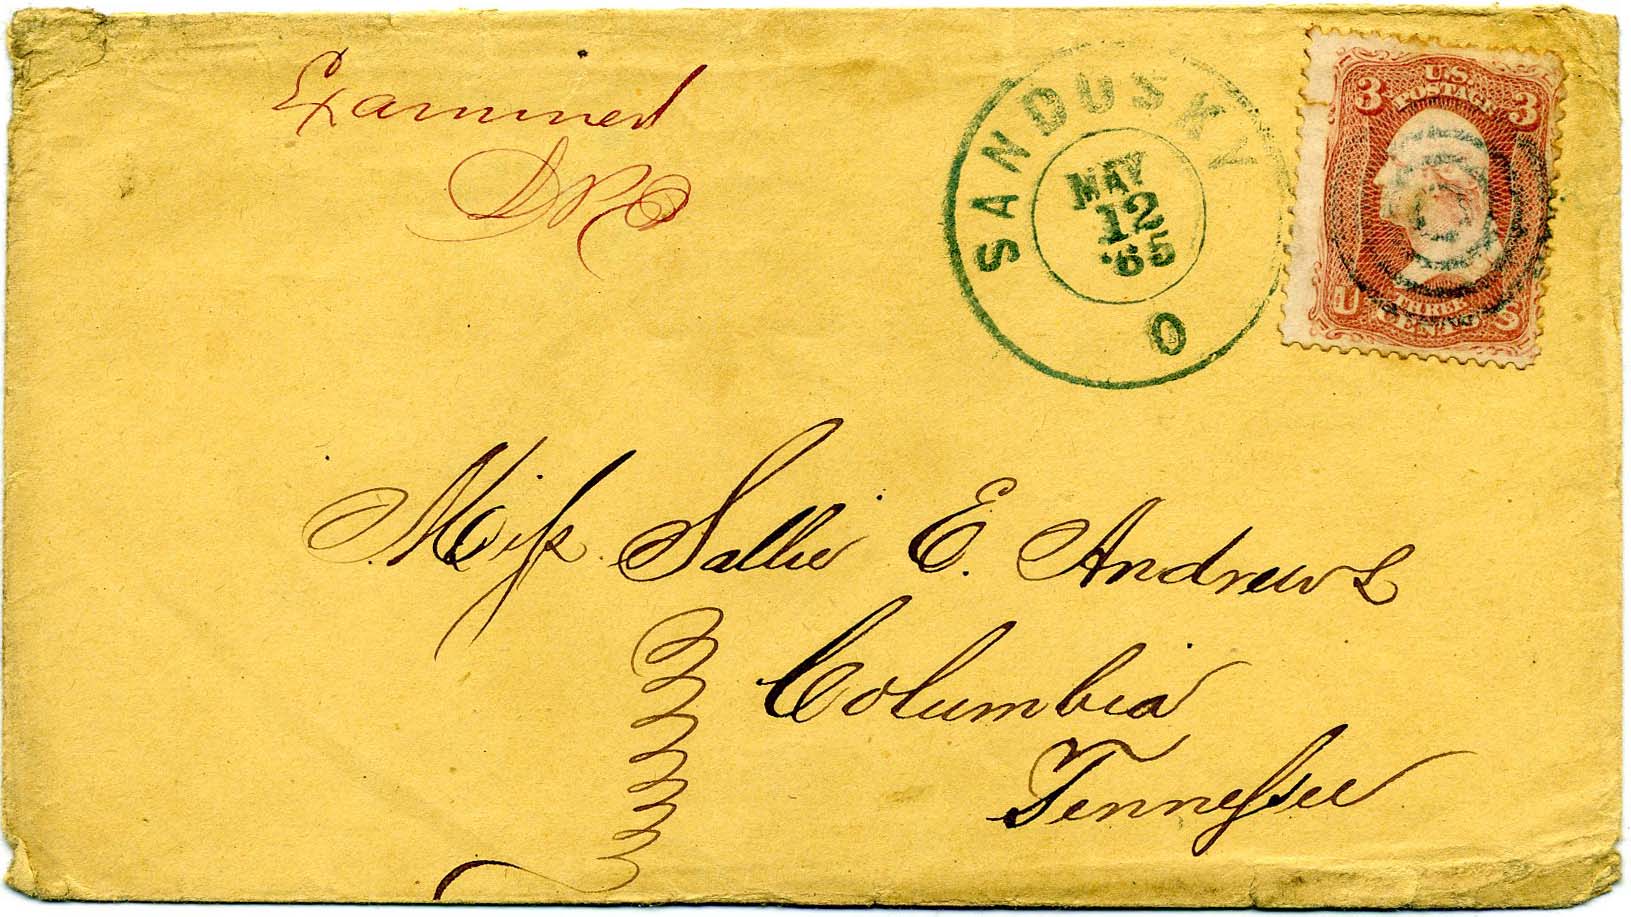 Examined
SANDUSKY
MAY
12
'65
O
U.S.
POSTAGE
3 3
THREE
U CENTS S
Miss Sallie E. Andrews
Columbia
Tennessee